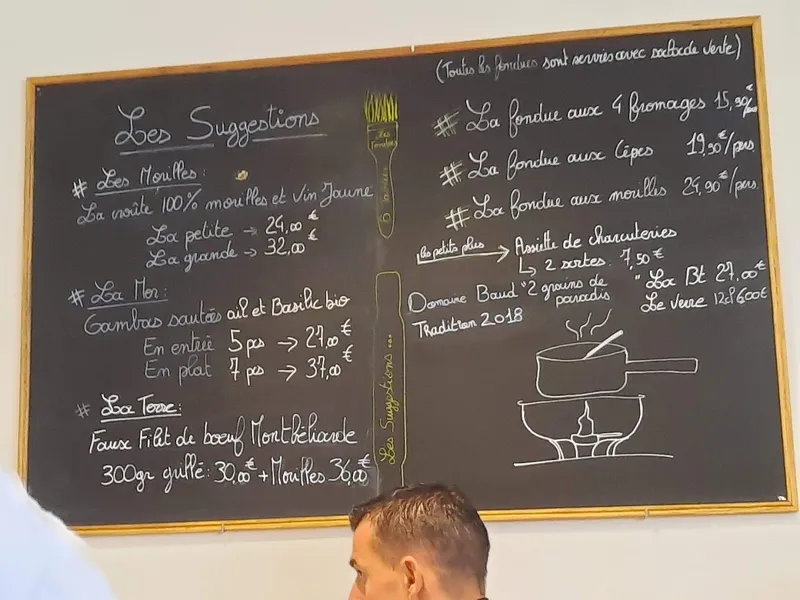 Les Suggestions
# Les Morilles :
La croûte 100% morilles et Vin Jaune
La petite → 24,00€
La grande → 32,00€
# La Mer :
Gambas sautées ail et Basilic bio
En entrée 5 pcs → 27,00€
En plat 7 pcs → 37,00€
# La Terre :
Faux Filet de boeuf Montbéliarde
300gr grillé : 30,00€ + Morilles 36,00€
Les Suggestions...
(Toutes les fondues sont servies avec salade verte)
# La fondue aux 4 fromages 15,90€/pers
# La fondue aux Cèpes 19,90€/pers.
# La fondue aux morilles 24,90€/pers.
les petits plus → Assiette de charcuteries
2 sortes. 7,50€
Domaine Baud "2 grains de paradis" La Bt 27,00€
Tradition 2018 Le verre 12cl 6,00€